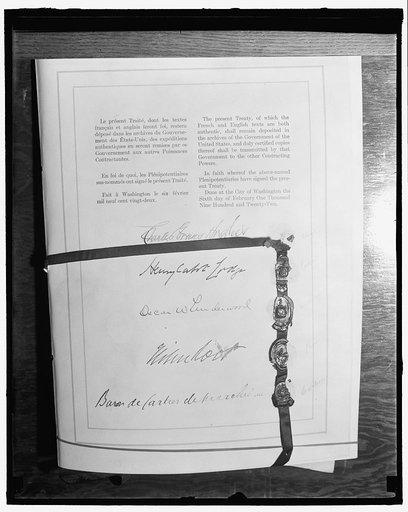 Le présent Traité, dont les textes
français et anglais feront foi, restera
déposé dans les archives du Gouverne-
ment des États-Unis, des expéditions
authentiques en seront remises par ce
Gouvernement aux autres Puissances
Contractantes.
En foi de quoi, les Plénipotentiaires
sus-nommés ont signé le présent Traité.
Fait à Washington le six février
mil neuf cent vingt-deux.
The present Treaty, of which the
French and English texts are both
authentic, shall remain deposited in
the archives of the Government of the
United States, and duly certified copies
thereof shall be transmitted by that
Government to the other Contracting
Powers.
In faith whereof the above-named
Plenipotentiaries have signed the pres-
ent Treaty.
Done at the City of Washington the
Sixth day of February One Thousand
Nine Hundred and Twenty-Two.
Charles Evans Hughes
Henry Cabot Lodge
Oscar W Underwood
Elihu Root
Baron de Cartier de Marchienne